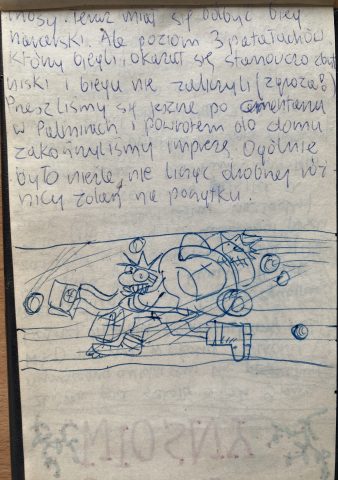 nosy. Teraz miał się odbyć bieg
harcerski. Ale poziom 3 patałachów
który biegli, okazał się stanowczo zbyt
niski i biegu nie zaliczyli (zgroza!)
Przeszliśmy się jeszcze po cmentarzu
w Palmirach i powrotem do domu
zakończyliśmy imprezę. Ogólnie
było nieźle, nie licząc drobnej róż-
nicy zdań na początku.